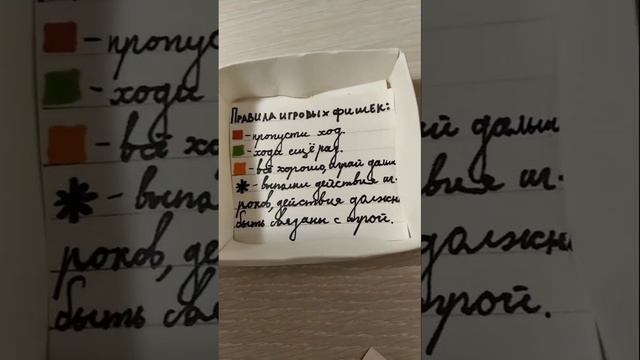 Правила игровых фишек:
- пропусти ход.
- ходи ещё раз.
- всё хорошо, играй дальше
- выполни действие иг-
роков, действия должны
быть связаны с игрой.